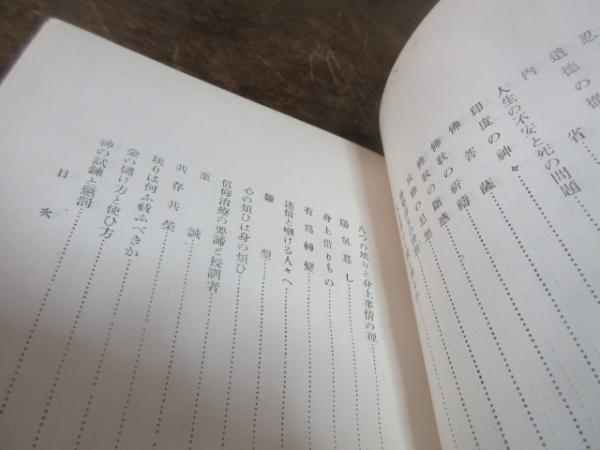 忍
道德の 省
內
人生の不安と死の問題
印度の神々
佛 菩 薩
佛敎の祈禱
佛敎の
八つの埃りと身上事情の理
陽氣暮し
身上借りもの
有爲轉變
迷信と嘲ける人々へ
雛 型
心の煩ひは身の煩ひ
信仰治療の要諦と授訓者
至 誠
共存共榮
埃りは何ぶ
金の儲け方と使ひ方
神の試鍊と懲罰
目 次